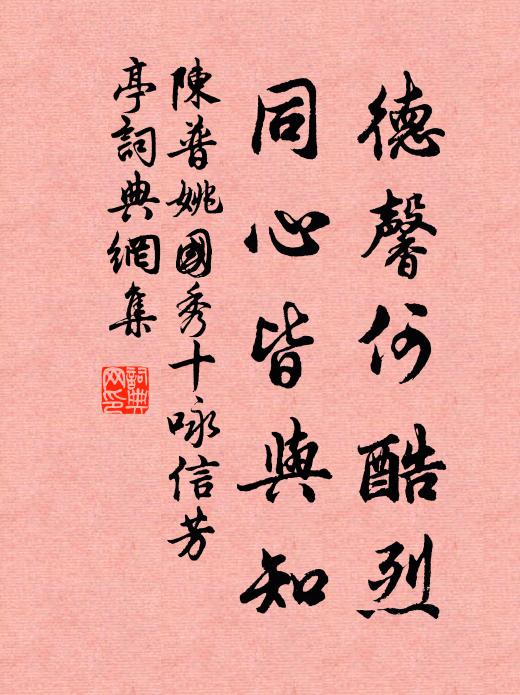 德馨何酷烈
同心皆與知
陳普姚國秀十咏信芳
亭詞典網集
詞典網印